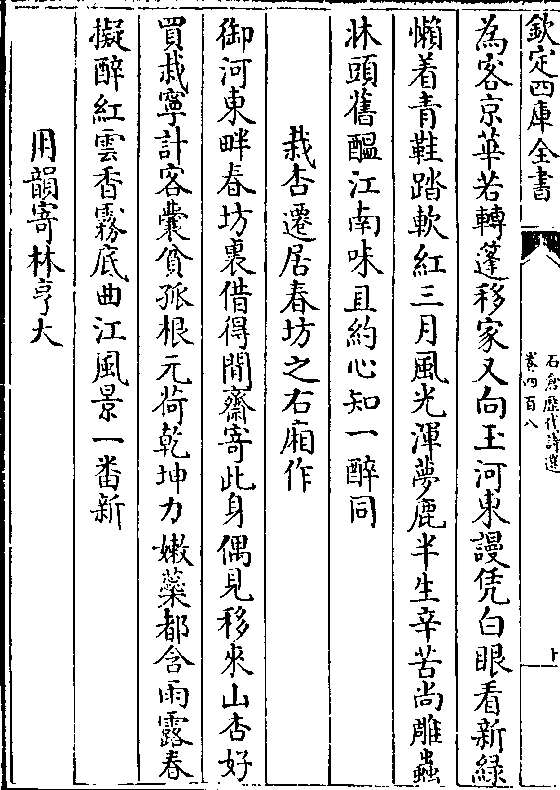 欽定四庫全書
石倉歷代詩選
卷四百八
十
為客京華若轉蓬移家又向玉河東謾凭白眼看新緑
懶着青鞋踏軟紅三月風光渾夢鹿半生辛苦尚雕蟲
牀頭舊醖江南味且約心知一醉同
栽杏遷居春坊之右廂作
御河東畔春坊裏借得閒齋寄此身偶見移來山杏好
買栽寧計客囊貧孤根元荷乾坤力嫩蘂都含雨露春
擬醉紅雲香霧底曲江風景一番新
用韻寄林亨大